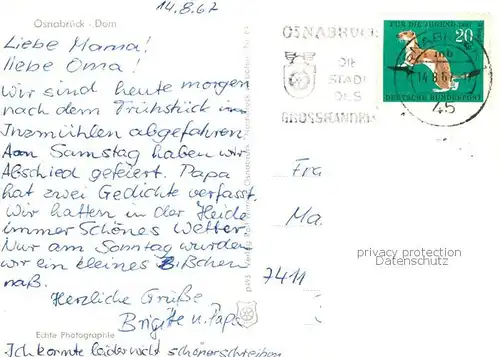 14.8.67
Osnabrück - Dom
Liebe Mama!
liebe Oma!
Wir sind heute morgen
nach dem Frühstück in
Inzmühlen abgefahren.
Am Samstag haben wir
Abschied gefeiert. Papa
hat zwei Gedichte verfasst.
Wir hatten in der Heide
immer schönes Wetter.
Nur am Sonntag wurden
wir ein kleines Bißchen
naß.
Herzliche Grüße
Brigitte u. Papa
Echte Photographie
Ich konnte leider nicht schöner schreiben
OSNABRÜCK
DIE
STADT
DES
GROSSHANDELS
FÜR DIE JUGEND
20
DEUTSCHE BUNDESPOST
14.8.67
45
Fra
Ma
7411
privacy protection
Datenschutz